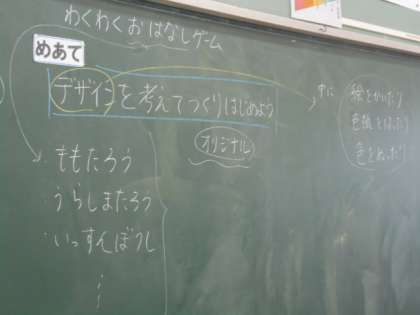 わくわくおはなしゲーム
めあて
デザインを考えてつくりはじめよう
オリジナル
・ももたろう
・うらしまたろう
・いっすんぼうし
絵をかいたり
色紙をはったり
色をぬったり